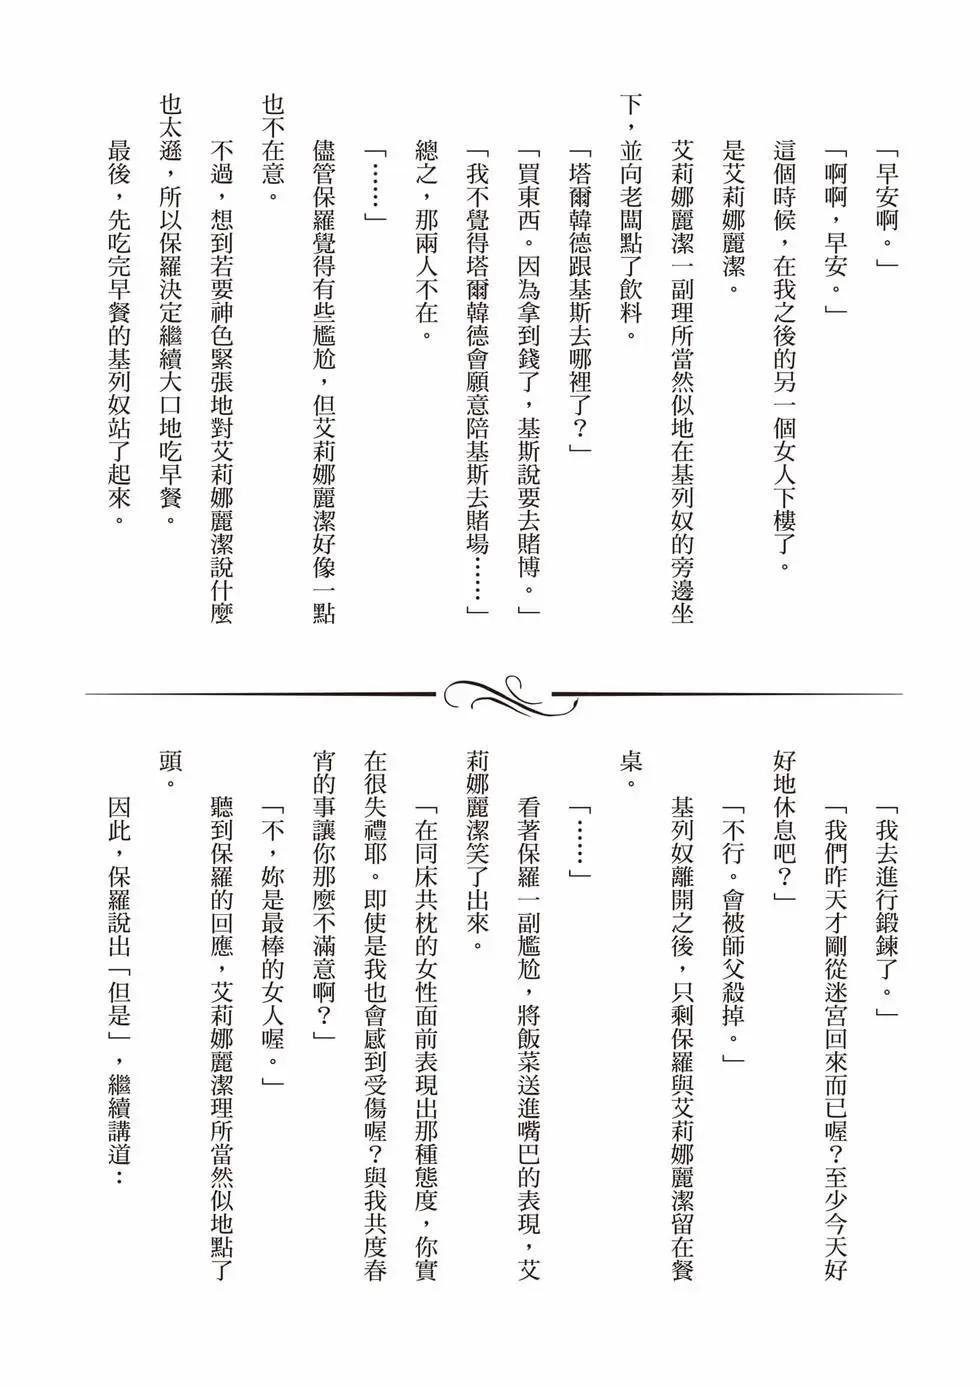 「早安啊。」
「啊啊，早安。」
這個時候，在我之後的另一個女人下樓了。
是艾莉娜麗潔。
艾莉娜麗潔一副理所當然似地在基列奴的旁邊坐
下，並向老闆點了飲料。
「塔爾韓德跟基斯去哪裡了？」
「買東西。因為拿到錢了，基斯說要去賭博。」
「我不覺得塔爾韓德會願意陪基斯去賭場……」
總之，那兩人不在。
「……」
儘管保羅覺得有些尷尬，但艾莉娜麗潔好像一點
也不在意。
不過，想到若要神色緊張地對艾莉娜麗潔說什麼
也太遜，所以保羅決定繼續大口地吃早餐。
最後，先吃完早餐的基列奴站了起來。
「我去進行鍛鍊了。」
「我們昨天才剛從迷宮回來而已喔？至少今天好
好地休息吧？」
「不行。會被師父殺掉。」
基列奴離開之後，只剩保羅與艾莉娜麗潔留在餐
桌。
「……」
看著保羅一副尷尬，將飯菜送進嘴巴的表現，艾
莉娜麗潔笑了出來。
「在同床共枕的女性面前表現出那種態度，你實
在很失禮耶。即使是我也會感到受傷喔？與我共度春
宵的事讓你那麼不滿意啊？」
「不，妳是最棒的女人喔。」
聽到保羅的回應，艾莉娜麗潔理所當然似地點了
頭。
因此，保羅說出「但是」，繼續講道：